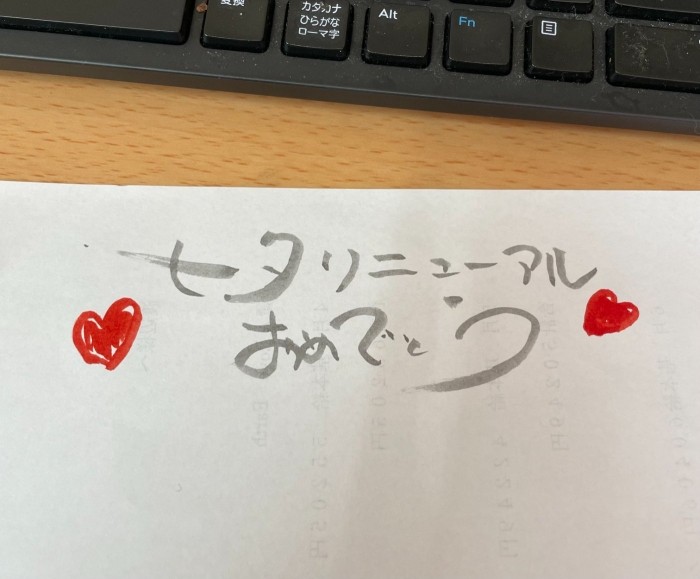 変換
カタカナ
ひらがな
ローマ字
Alt
Fn
七夕リニューアル
おめでとう
Earth